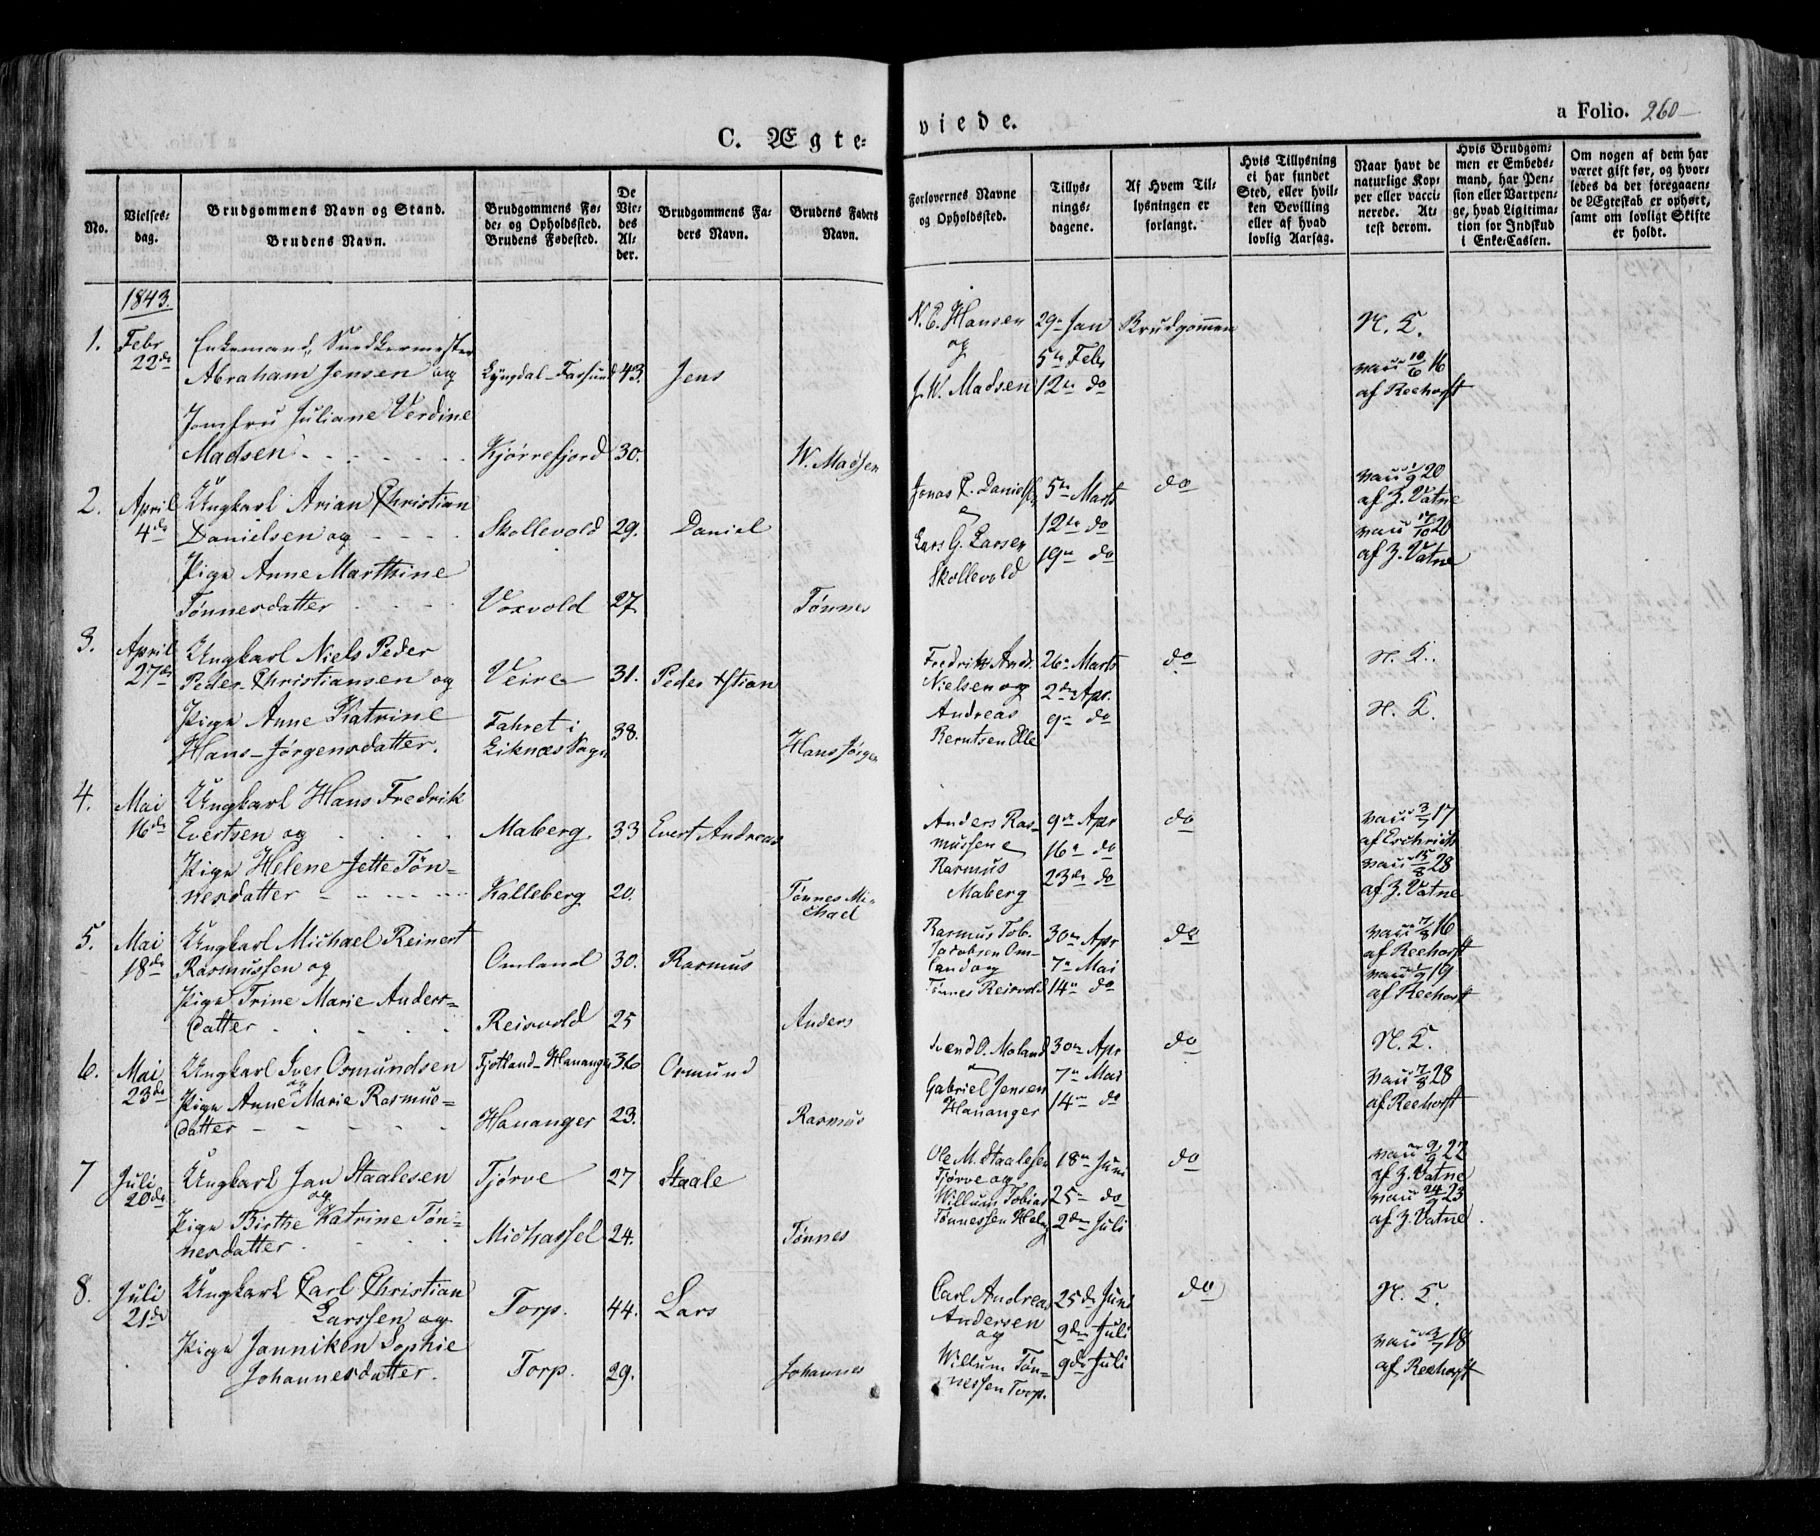 C. Ægte-
viede.
a Folio. 260
No.
Vielses-
dag.
Brudgommens Navn og Stand.
Brudens Navn.
Brudgommens Fø-
de- og Opholdsted.
Brudens Fødested.
De
Vie-
des
Al-
der.
Brudgommens Fa-
ders Navn.
Brudens Faders
Navn.
Forlovernes Navne
og Opholdsted.
Tillys-
nings-
dagene.
Af Hvem Til-
lysningen er
forlangt.
Hvis Tillysning
ei har fundet
Sted, eller hvil-
ken Bevilling
eller af hvad
lovlig Aarsag.
Naar havt de
naturlige Kop-
per eller vacci-
nerede. At-
test derom.
Hvis Brudgom-
men er Embeds-
mand, har Pen-
sion eller Vartpen-
ge, hvad Ligitima-
tion for Indskud
i Enke-Cassen.
Om nogen af dem har
været gift før, og hvor-
ledes da det foregaaen-
de Ægteskab er ophørt,
samt om lovligt Skifte
er holdt.
1843.
1.
Febr
22de
Enkemand, Snedkermester
Abraham Jensen og
Lyngdal-Farsund
43.
Jens
Jomfru Juliane Verdine
Madsen
Kjørrefjord
30.
W. Madsen
N. E. Hansen
og
J. W. Madsen
29de Jan
5te Febr
12te do
Brudgommen
N. K.
vacc 10/6 16
af Reehorst
2.
April
4de
Ungkarl Arian Christian
Danielsen og
Skollevold
29.
Daniel
Pige Anne Marthine
Tønnesdatter
Voxvold
27.
Tønnes
Jonas C. Danielsen
Lars G. Larsen
Skollevold
5te Marts
12te do
19de do
do
vacc 1/9 20
af Z. Vatne
vacc 17/10 20
af Z. Vatne
3.
April
27de
Ungkarl Niels Peder
Peder-Christiansen og
Veire
31.
Peder Xstian
Pige Anne Katrine
Hans-Jørgensdatter.
Fahret i
Liknæs Sogn
38.
Hans Jørgen
Fredrik Andr.
Nielsen og
Andreas
Berntsen Elle
26de Marts
2den Apr.
9de do
do
N. K.
N. K.
4.
Mai
16de
Ungkarl Hans Fredrik
Evertsen og
Maberg.
33
Evert Andreas
Pige Helene Jette Tøn-
nesdatter
Kalleberg
20.
Tønnes Mi-
chael
Anders Ras-
mussen
Rasmus
Maberg
9de Apr
16de do
23de do
do
vacc 3/7 17
af Eschricht
vacc 15/8 28
af Z. Vatne
5.
Mai
18de
Ungkarl Michael Reinert
Rasmussen og
Omland
30.
Rasmus
Pige Trine Marie Anders-
datter
Reisvold
25
Anders
Rasmus Tob.
Jacobsen Om-
land og
Tønnes Reisvold
30de Apr
7de Mai
14de do
do
vacc 7/8 16
af Reehorst
vacc 1/9 19
af Reehorst
6.
Mai
23de
Ungkarl Iver Osmundsen
og
Fjotland-Hananger
36
Osmund
Pige Anne Marie Rasmus-
datter
Hananger
23.
Rasmus
Svend O. Moland
Gabriel Jensen
Hananger
30de Apr
7de Mai
14de do
do
N. K.
vacc 7/8 28
af Reehorst
7
Juli
20de
Ungkarl Jan Staalesen
og
Tjørve
27
Staale
Pige Birthe Katrine Tøn-
nesdatter
Michassel
24.
Tønnes
Ole M. Staalesen
Tjørve og
Willum Tobias
Tønnessen Helv
18de Juni
25de do
2den Juli
do
vacc 9/9 22
af Z. Vatne
vacc 24/9 23
af Z. Vatne
8.
Juli
21de
Ungkarl Carl Christian
Larssen og
Torp.
44.
Lars
Pige Janniken Sophie
Johannesdatter.
Torp.
29.
Johannes
Carl Andreas
Andersen
og
Willum Tøn-
nessen Torp.
25de Juni
2den Juli
9de Juli
do
N. K.
vacc 3/7 18
af Reehorst